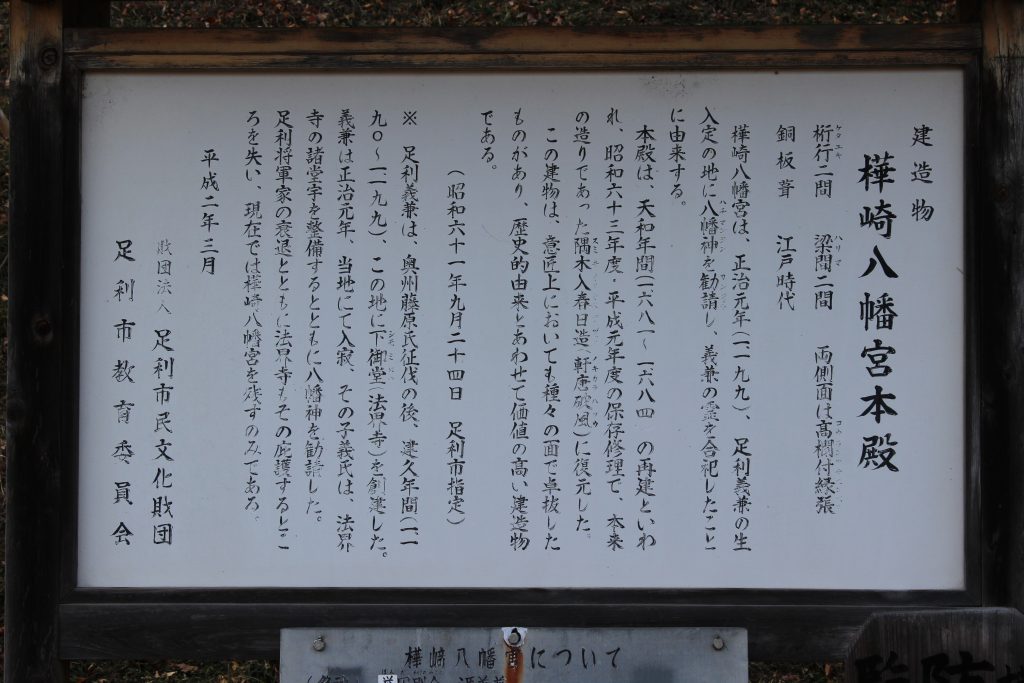 建造物
樺崎八幡宮本殿
桁行二間 梁間二間 両側面は高欄付縁張
銅板葺 江戸時代
樺崎八幡宮は、正治元年(一一九九)、足利義兼の生
入定の地に八幡神を勧請し、義兼の霊を合祀したこと
に由来する。
本殿は、天和年間(一六八一〜一六八四)の再建といわ
れ、昭和六十三年度・平成元年度の保存修理で、本来
の造りであった隅木入春日造(軒唐破風)に復元した。
この建物は、意匠上においても種々の面で卓抜した
ものがあり、歴史的由来とあわせて価値の高い建造物
である。
(昭和六十一年九月二十四日 足利市指定)
※ 足利義兼は、奥州藤原氏征伐の後、建久年間(一一
九〇〜一一九九)、この地に下御堂(法界寺)を創建した。
義兼は正治元年、当地にて入寂、その子義氏は、法界
寺の諸堂宇を整備するとともに八幡神を勧請した。
足利将軍家の衰退とともに法界寺もその庇護するとこ
ろを失い、現在では樺崎八幡宮を残すのみである。
平成二年三月
財団法人 足利市民文化財団
足利市教育委員会
樺崎八幡宮について